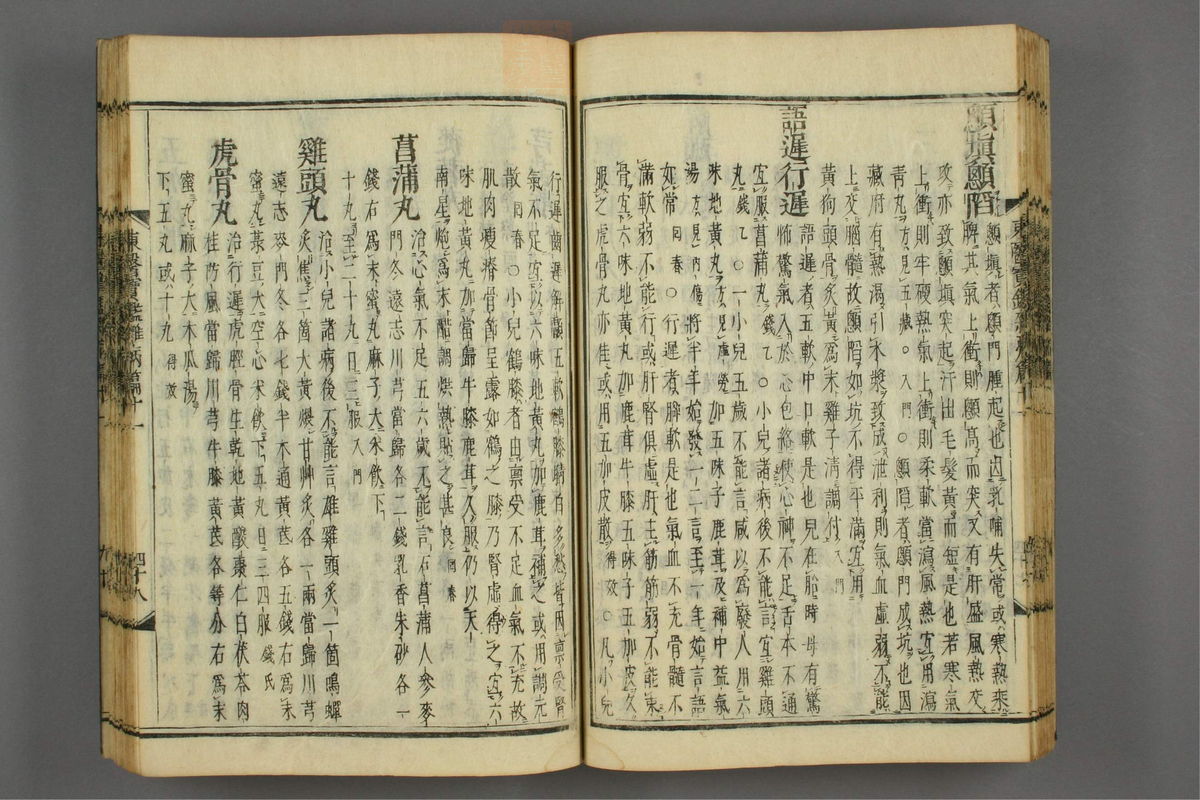 顖塡顖陷 顖塡者顖門腫起也因乳哺失常或寒熱乘
脾其氣上衝則顖高而突又有肝盛風熱交
攻亦致顖塡突起汗出毛髮黃而短是也若寒氣
上衝則牢硬熱氣上衝則柔軟當瀉風熱宜用瀉
靑丸方見五藏○入門○顖陷者顖門成坑也因
藏府有熱渴引水漿致成泄利則氣血虛弱不能
上交腦髓故顖陷如坑不得平滿宜用
黃狗頭骨炙黃爲末雞子淸調付入門
語遲行遲 語遲者五軟中口軟是也兒在胎時母有驚
怖驚氣入於心包絡使心神不足舌本不通
宜服菖蒲丸錢乙○小兒諸病後不能言宜雞頭
丸錢乙○一小兒五歲不能言咸以爲廢人用六
味地黃丸方見虛勞加五味子鹿茸及補中益氣
湯方見內傷將半年始發一二言至一年始言語
如常回春○行遲者脚軟是也氣血不充骨髓不
滿軟弱不能行或肝腎俱虛肝主筋筋弱不能束
骨宜六味地黃丸加鹿茸牛膝五味子五加皮久
服之虎骨丸亦佳或用五加皮散得效○凡小兒
行遲齒遲解顱五軟鶴膝睛白多愁皆因禀受腎
氣不足宜以六味地黃丸加鹿茸補之或用調元
散回春○小兒鶴膝者由禀受不足血氣不充故
肌肉瘦瘠骨節呈露如鶴之膝乃腎虛得之宜六
味地黃丸加當歸牛膝鹿茸久服仍以天
南星炮爲末醋調烘熱貼之甚良回春
菖蒲丸 治心氣不足五六歲不能言石菖蒲人參麥
門冬遠志川芎當歸各二錢乳香朱砂各一
錢右爲末蜜丸麻子大米飮下
十丸至二十丸日三服入門
雞頭丸 治小兒諸病後不能言雄雞頭炙一箇鳴蟬
炙焦三箇大黃煨甘艸炙各一兩當歸川芎
遠志麥門冬各七錢半木通黃芪各五錢右爲末
蜜丸菉豆大空心米飮下五丸日三四服錢氏
虎骨丸 治行遲虎脛骨生乾地黃酸棗仁白茯苓肉
桂防風當歸川芎牛膝黃芪各等分右爲末
蜜丸麻子大木瓜湯
下五丸或十丸得效
東醫寶鑑雜病篇十一
四十八